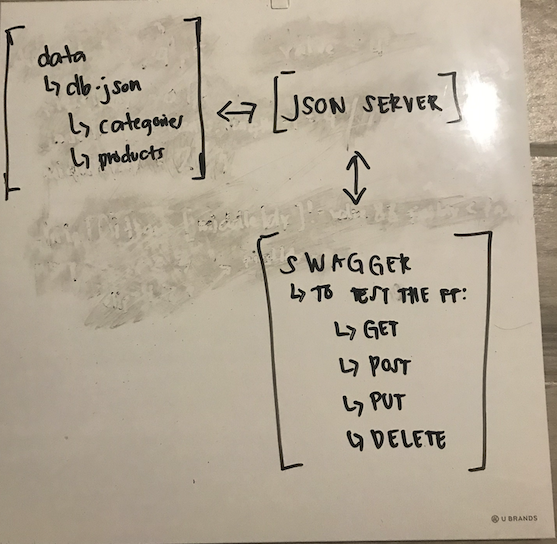 data
↳ db.json
↳ categories
↳ products
[JSON SERVER]
SWAGGER
↳ TO TEST THE FF:
↳ GET
↳ POST
↳ PUT
↳ DELETE
U BRANDS